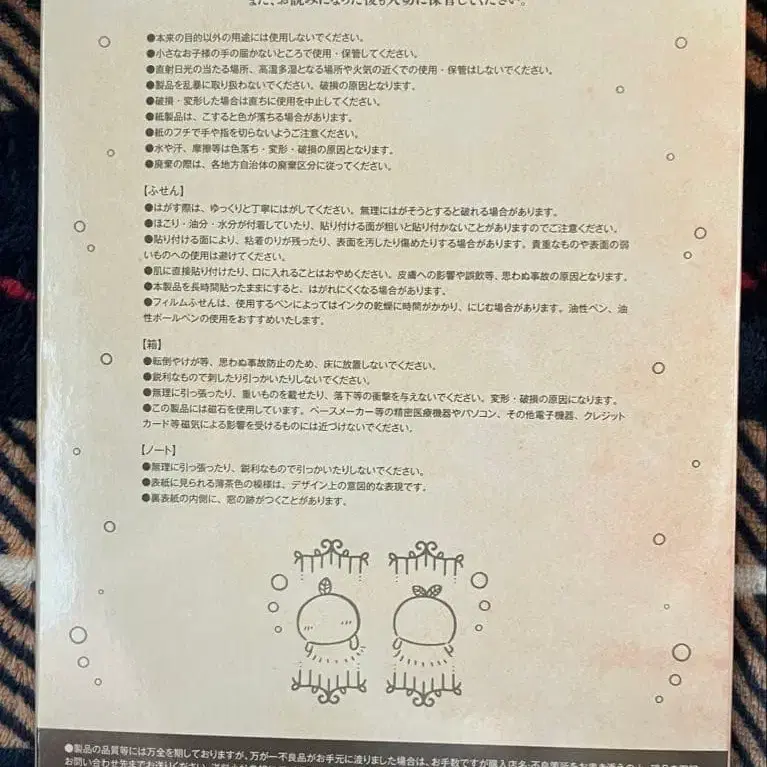 また、お読みになった後も大切に保管してください。
●本来の目的以外の用途には使用しないでください。
●小さなお子様の手の届かないところで使用・保管してください。
●直射日光の当たる場所、高温多湿となる場所や火気の近くでの使用・保管はしないでください。
●製品を乱暴に取り扱わないでください。破損の原因となります。
●破損・変形した場合は直ちに使用を中止してください。
●紙製品は、こすると色が落ちる場合があります。
●紙のフチで手や指を切らないようご注意ください。
●水や汗、摩擦等は色落ち・変形・破損の原因となります。
●廃棄の際は、各地方自治体の廃棄区分に従ってください。
【ふせん】
●はがす際は、ゆっくりと丁寧にはがしてください。無理にはがそうとすると破れる場合があります。
●ほこり・油分・水分が付着していたり、貼り付ける面が粗いと貼り付かないことがありますのでご注意ください。
●貼り付ける面により、粘着のりが残ったり、表面を汚したり傷めたりする場合があります。貴重なものや表面の弱
いものへの使用は避けてください。
●肌に直接貼り付けたり、口に入れることはおやめください。皮膚への影響や誤飲等、思わぬ事故の原因となります。
●本製品を長時間貼ったままにすると、はがれにくくなる場合があります。
●フィルムふせんは、使用するペンによってはインクの乾燥に時間がかかり、にじむ場合があります。油性ペン、油
性ボールペンの使用をおすすめいたします。
【箱】
●転倒やけが等、思わぬ事故防止のため、床に放置しないでください。
●鋭利なもので刺したり引っかいたりしないでください。
●無理に引っ張ったり、重いものを載せたり、落下等の衝撃を与えないでください。変形・破損の原因になります。
●この製品には磁石を使用しています。ペースメーカー等の精密医療機器やパソコン、その他電子機器、クレジット
カード等磁気による影響を受けるものには近づけないでください。
【ノート】
●無理に引っ張ったり、鋭利なもので引っかいたりしないでください。
●表紙に見られる薄茶色の模様は、デザイン上の意図的な表現です。
●裏表紙の内側に、窓の跡がつくことがあります。
●製品の品質等には万全を期しておりますが、万が一不良品がお手元に渡りました場合は、お手数ですが購入店名・不良箇所を
お問い合わせ先までお送りください。